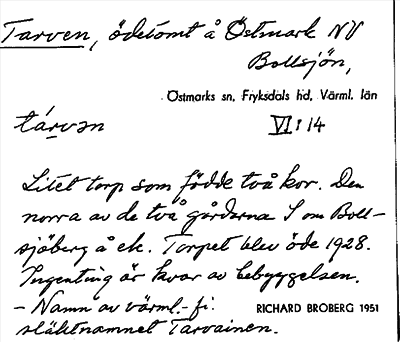 Tarven, ödetomt å Östmark NV
Bollsjön,
Östmarks sn, Fryksdals hd, Värml. län
tárvən VI:14
Litet torp som födde två kor. Den
norra av de två gårdarna S om Boll-
sjöberg å ek. Torpet blev öde 1928.
Ingenting är kvar av bebyggelsen.
- Namn av värml.-fi.
släktnamnet Tarvainen.
RICHARD BROBERG 1951